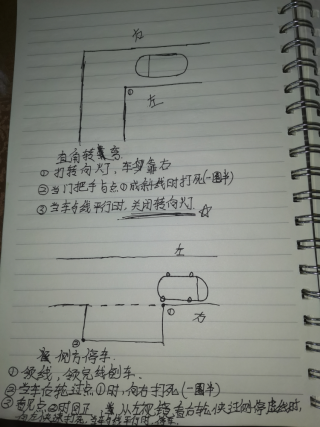 右
①
左
直角转弯
① 打转向灯，车身靠右
② 当门把手与点①成斜线时打死(一圈半)
③ 当车与线平行时，关闭转向灯 ☆
左
①
右
②
侧方停车.
① 领线，领完线倒车.
② 当车右轮过点①时，向右打死(一圈半)
③ 看见点②时回正，从左视镜看右轮快压侧停虚线时，